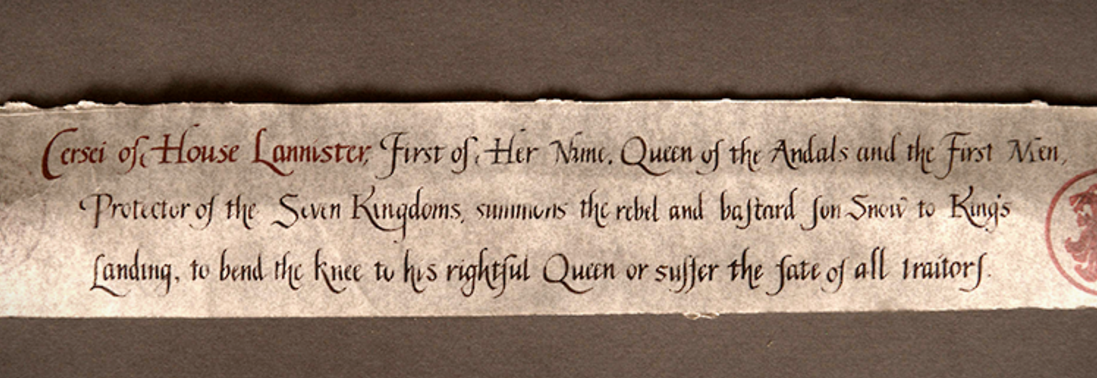 Cersei of House Lannister, First of Her Name, Queen of the Andals and the First Men,
Protector of the Seven Kingdoms, summons the rebel and bastard Jon Snow to King's
Landing, to bend the knee to his rightful Queen or suffer the fate of all traitors.